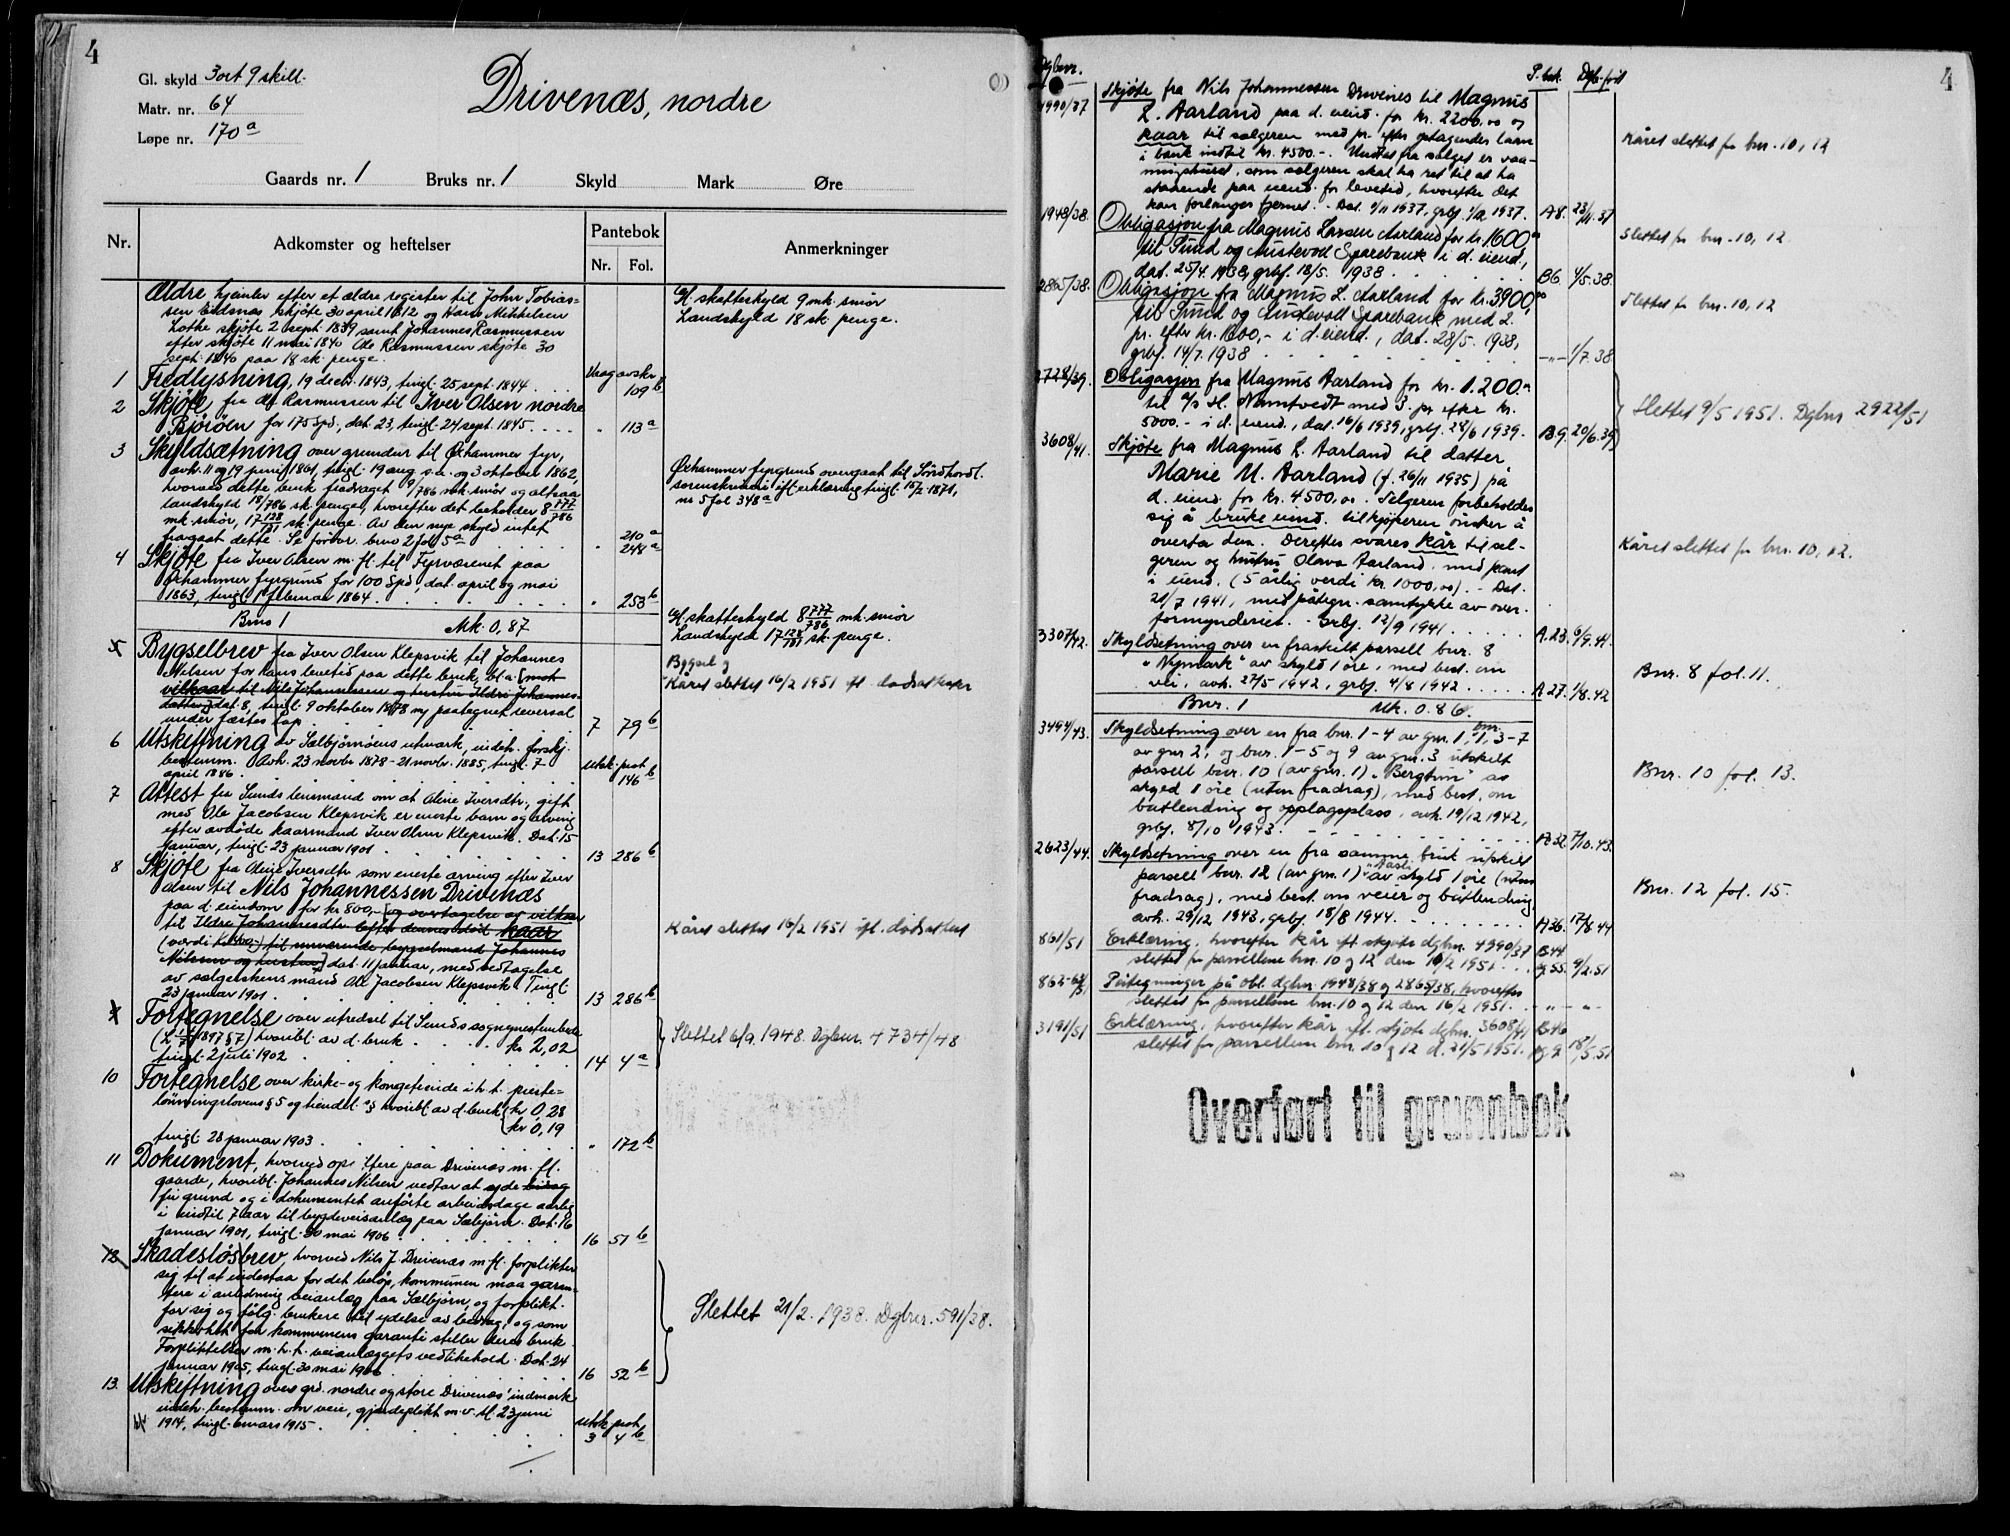 4
Gl. skyld 3 ort 9 skill.
Matr. nr. 64
Løpe nr. 170 a
Drivenæs, nordre
Gaards nr. 1 Bruks nr. 1 Skyld Mark Øre
Nr. Adkomster og heftelser Pantebok Anmerkninger
Nr. Fol.
Ældre hjemler efter et ældre register til John Tobias-
sen Eidsnæs skjøte 30 april 1812 og Hans Mikkelsen
Lothe skjøte 2 sept. 1839 samt Johannes Rasmussen
efter skjøte 11 mai 1840 Ole Rasmussen skjøte 30
sept. 1840 paa 18 sk. penge.
Gl. skatteskyld 9 mk. smør
Landskyld 18 sk. penge.
1 Fredlysning, 19 decbr. 1843, tingl. 25 sept. 1844 . . Vragavskr. 109 b
2 Skjøte fra Ole Rasmussen til Iver Olsen nordre
Björöen for 175 Spd., dat. 23, tingl. 24 sept. 1845. . . . " 113 a
3 Skyldsætning over grunden til Øxhammer fyr,
avh. 11 og 19 juni 1861, tingl. 19 aug. s.a. og 3 oktober 1862,
hvorved dette bruk fradraget 9/786 mk. smør og altsaa
landskyld 18/786 sk. penge, hvorefter det beholder 8 777/786
mk. smør, 17 128/131 sk. penge. Av den nye skyld intet
fragaat dette. Se forøvr. bruk 2 fol 5 a . . . . " 210 a 248 a
Øxhammer fyrgrund overgaat til Söndhordl.
sorenskriveri ifl. erklæring tingl. 15/2 1871,
nr 5 fol 348 a
4 Skjöte fra Iver Olsen m. fl. til Fyrvæsenet paa
Øxhammer fyrgrund for 100 Spd., dat. april og mai
1863, tingl. 1 februar 1864. . . . . " 253 b
Bruk 1 Mk. 0,87
Gl. skatteskyld 8 777/786 mk. smör
Landskyld 17 128/131 sk. penge.
5 Bygselbrev fra Iver Olsen Klepsvik til Johannes
Nilsen for hans levetid paa dette bruk, bl.a. mot
vilkaar til Nils Johannessen og hustru Ildri Johannes-
datter, dat. 8, tingl. 9 oktober 1878 m/ paategnet reversal
under fæstes lap. . . . . 7 79 b
Bygsel og
Kåret slettet 16/2 1951 ifl. dødsattester
6 Utskiftning av Sælbjörnöens utmark, indeh. forskj.
bestemm. Avh. 23 novbr. 1878 - 21 novbr. 1885, tingl. 7
april 1886. . . . . Utsk. prot 146 b
7 Attest fra Sunds lensmand om at Aline Iversdtr., gift
med Ole Jacobsen Klepsvik er eneste barn og arving
efter avdöde kaarmand Iver Olsen Klepsvik. Dat. 15
januar, tingl. 23 januar 1901 . . . . 13 286 b
8 Skjöte fra Aline Iversdtr. som eneste arving efter Iver
Olsen til Nils Johannessen Drivenæs
paa d. eiendom for kr 800,- og overtagelse av vilkaar
til Ildre Johannesdtr. efter dennes död kaar
til nuværende bygselmand Johannes
Nilsen og hustru, dat. 11 januar, med vedtagelse
av sælgerskens mand Ole Jacobsen Klepsvik. Tingl.
23 januar 1901. . . . . 13 286 b
Kåret slettet 16/2 1951 ifl. dødsattest
9 Fortegnelse over utredsel til Sunds sogneprestembede
(L. 1897 § 7) hvoribl. av d. bruk . . . . kr 2,02
tingl. 2 juli 1902 . . . . 14 4 a
Slettet 6/9 1948. Dgbnr. 4734/48
10 Fortegnelse over kirke- og kongetiende i h. t. præste-
lönningslovens § 5 og tiendel. § hvoribl. av d. bruk kr 0,28
kr 0,19
tingl. 28 januar 1903 . . . . " 172 b
11 Dokument, hvorved opsittere paa Drivenæs m. fl.
gaarde, hvoribl. Johannes Nilsen vedtar at yde bidrag
fri grund og i dokumentet anførte arbeidsdage aarlig
i indtil 7 aar til bygdeveisanlæg paa Sælbjörn. Dat. 16
januar 1901, tingl. 30 mai 1906. . . . 16 51 b
12 Skadeslösbrev, hvorved Nils J. Drivenæs m. fl. forplikter
sig til at indestaa for det belöp, kommunen maa garan-
tere i anledning veianlæg paa Sælbjörn, og forplikt.
for sig og fölg. brukere til ydelse av bidrag, og som
sikkerhet for kommunens garanti stiller deres bruk.
Forpliktelser m. h. t. veianlæggets vedlikehold. Dat. 24
januar 1905, tingl. 30 mai 1906 . . . . 16 52 b
Slettet 21/2. 1938. Dgbnr. 591/38.
13. Utskiftning over grd. nordre og store Drivenæs' indmark
indeh. bestemm. om veie, gjerdeplikt m. v. sl. 23 juni
1914, tingl. 6 mars 1915. . . . . Utsk. prot. 3 4 b
Dgbnr. P. bok. Dgb. ført 4
4990/37 Skjöte fra Nils Johannessen Drivenes til Magnus
L. Aarland paa d. eiend. for kr. 2200,00 og
kaar til sælgeren med pr. efter optagendes laan
i bank indtil kr. 4500.-. Undtat fra salget er vaa-
ningshuset, som selgeren skal ha ret til at ha
staaende paa eiend. for levetid, hvorefter det
kan forlanges fjernet. - Dat. 9/11 1937, grbf. 1/12 1937. A8. 23/11.37
Kåret slettet for bnr. 10, 12
1948/38. Obligasjon fra Magnus Larsen Aarland for kr. 1600,00
til Sund og Austevoll Sparebank i d. eiend.,
dat. 25/4. 1938, grbf. 18/5. 1938 . . . . B6. 4/5.38.
Slettet for bnr. 10, 12
2865/38. Obligasjon fra Magnus L. Aarland for kr. 3900,00
til Sund og Austevoll Sparebank med 2.
pr. efter kr. 1600,- i d. eiend., dat. 28/5. 1938,
grbf. 14/7. 1938 . . . . -"- 1/7.38
Slettet for bnr. 10, 12
2728/39. Obligasjon fra Magnus Aarland for kr. 1.200.00
til a/s H. Namtvedt med 3. pr. efter kr.
5000.- i d. eiend., dat. 16/6 1939, grbf. 28/6 1939. B9. 20/6.39
Slettet 9/5 1951. Dgbnr 2922/51
3608/41. Skjöte fra Magnus L. Aarland til datter
Marie M. Aarland (f. 26/11 1935) på
d. eiend. for kr. 4500,00. Selgeren forbeholder
sig å bruke eiend. til kjøperen ønsker å
overta den. Derefter svares kår til sel-
geren og hustru Olava Aarland med pant
i eiend. (5 årlig verdi kr 1000,00). - Dat.
21/7 1941, med påtegn. samtykke av over-
formynderiet. - Grbf. 12/9 1941 . . . . . A.23. 6/9.41.
Kåret slettet for bnr. 10, 12.
3307/42. Skyldsetning over en fraskilt parsell bnr. 8
"Nymark" av skyld 1 øre, med best. om
vei, avh. 27/5 1942, grbf. 4/8 1942 . . . . . A 27. 1/8.42
Bnr. 8 fol. 11.
Bnr. 1 Mk. 0.86.
3494/43. Skyldsetning over en fra bnr. 1-4 av gnr. 1, bnr. 1, 3-7
av gnr 2, og bnr. 1-5 og 9 av gnr. 3 utskilt
parsell bnr. 10 (av gnr. 1) "Bergtun" av
skyld 1 øre (uten fradrag), med best. om
båtlending og opplagsplass, avh. 19/12 1942,
grbf. 8/10 1943. . . . . A 32. 7/10.43.
Bnr. 10 fol. 13.
2623/44. Skyldsetning over en fra samme bruk utskilt
parsell bnr. 12 (av gnr. 1) av skyld 1 øre (uten
fradrag), med best. om veier og båtlending,
avh. 29/12 1943, grbf. 18/8 1944. . . . . A36. 17/8 44
Bnr. 12 fol. 15.
861/51 Erklæring, hvorefter kår ifl. skjöte dgbnr. 4990/37 B44
slettet for parsellene bnr. 10 og 12 den 16/2 1951. . . . og 55. 9/2.51
862-63/51 Påtegninger på obl. dgbnr. 1948/38 og 2865/38, hvorefter
slettet for parsellene bnr. 10 og 12 den 16/2 1951. . . -"- -"-
3191/51 Erklæring, hvorefter kår ifl. skjöte dgbnr. 3608/41 B46
slettet for parsellene bnr. 10 og 12 d. 21/5 1951. og 9. 18/5.51
Overført til grunnbok